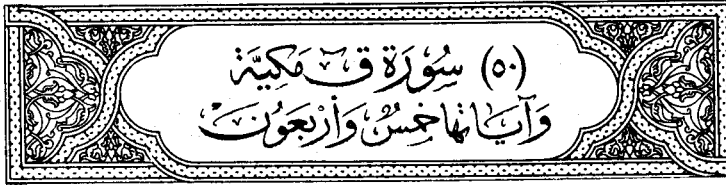 (٥٠) سُوْرَة قٓ مَكِيَّة
وَآيَاتهَا خَمْسٌ وَأَرْبَعُونَ